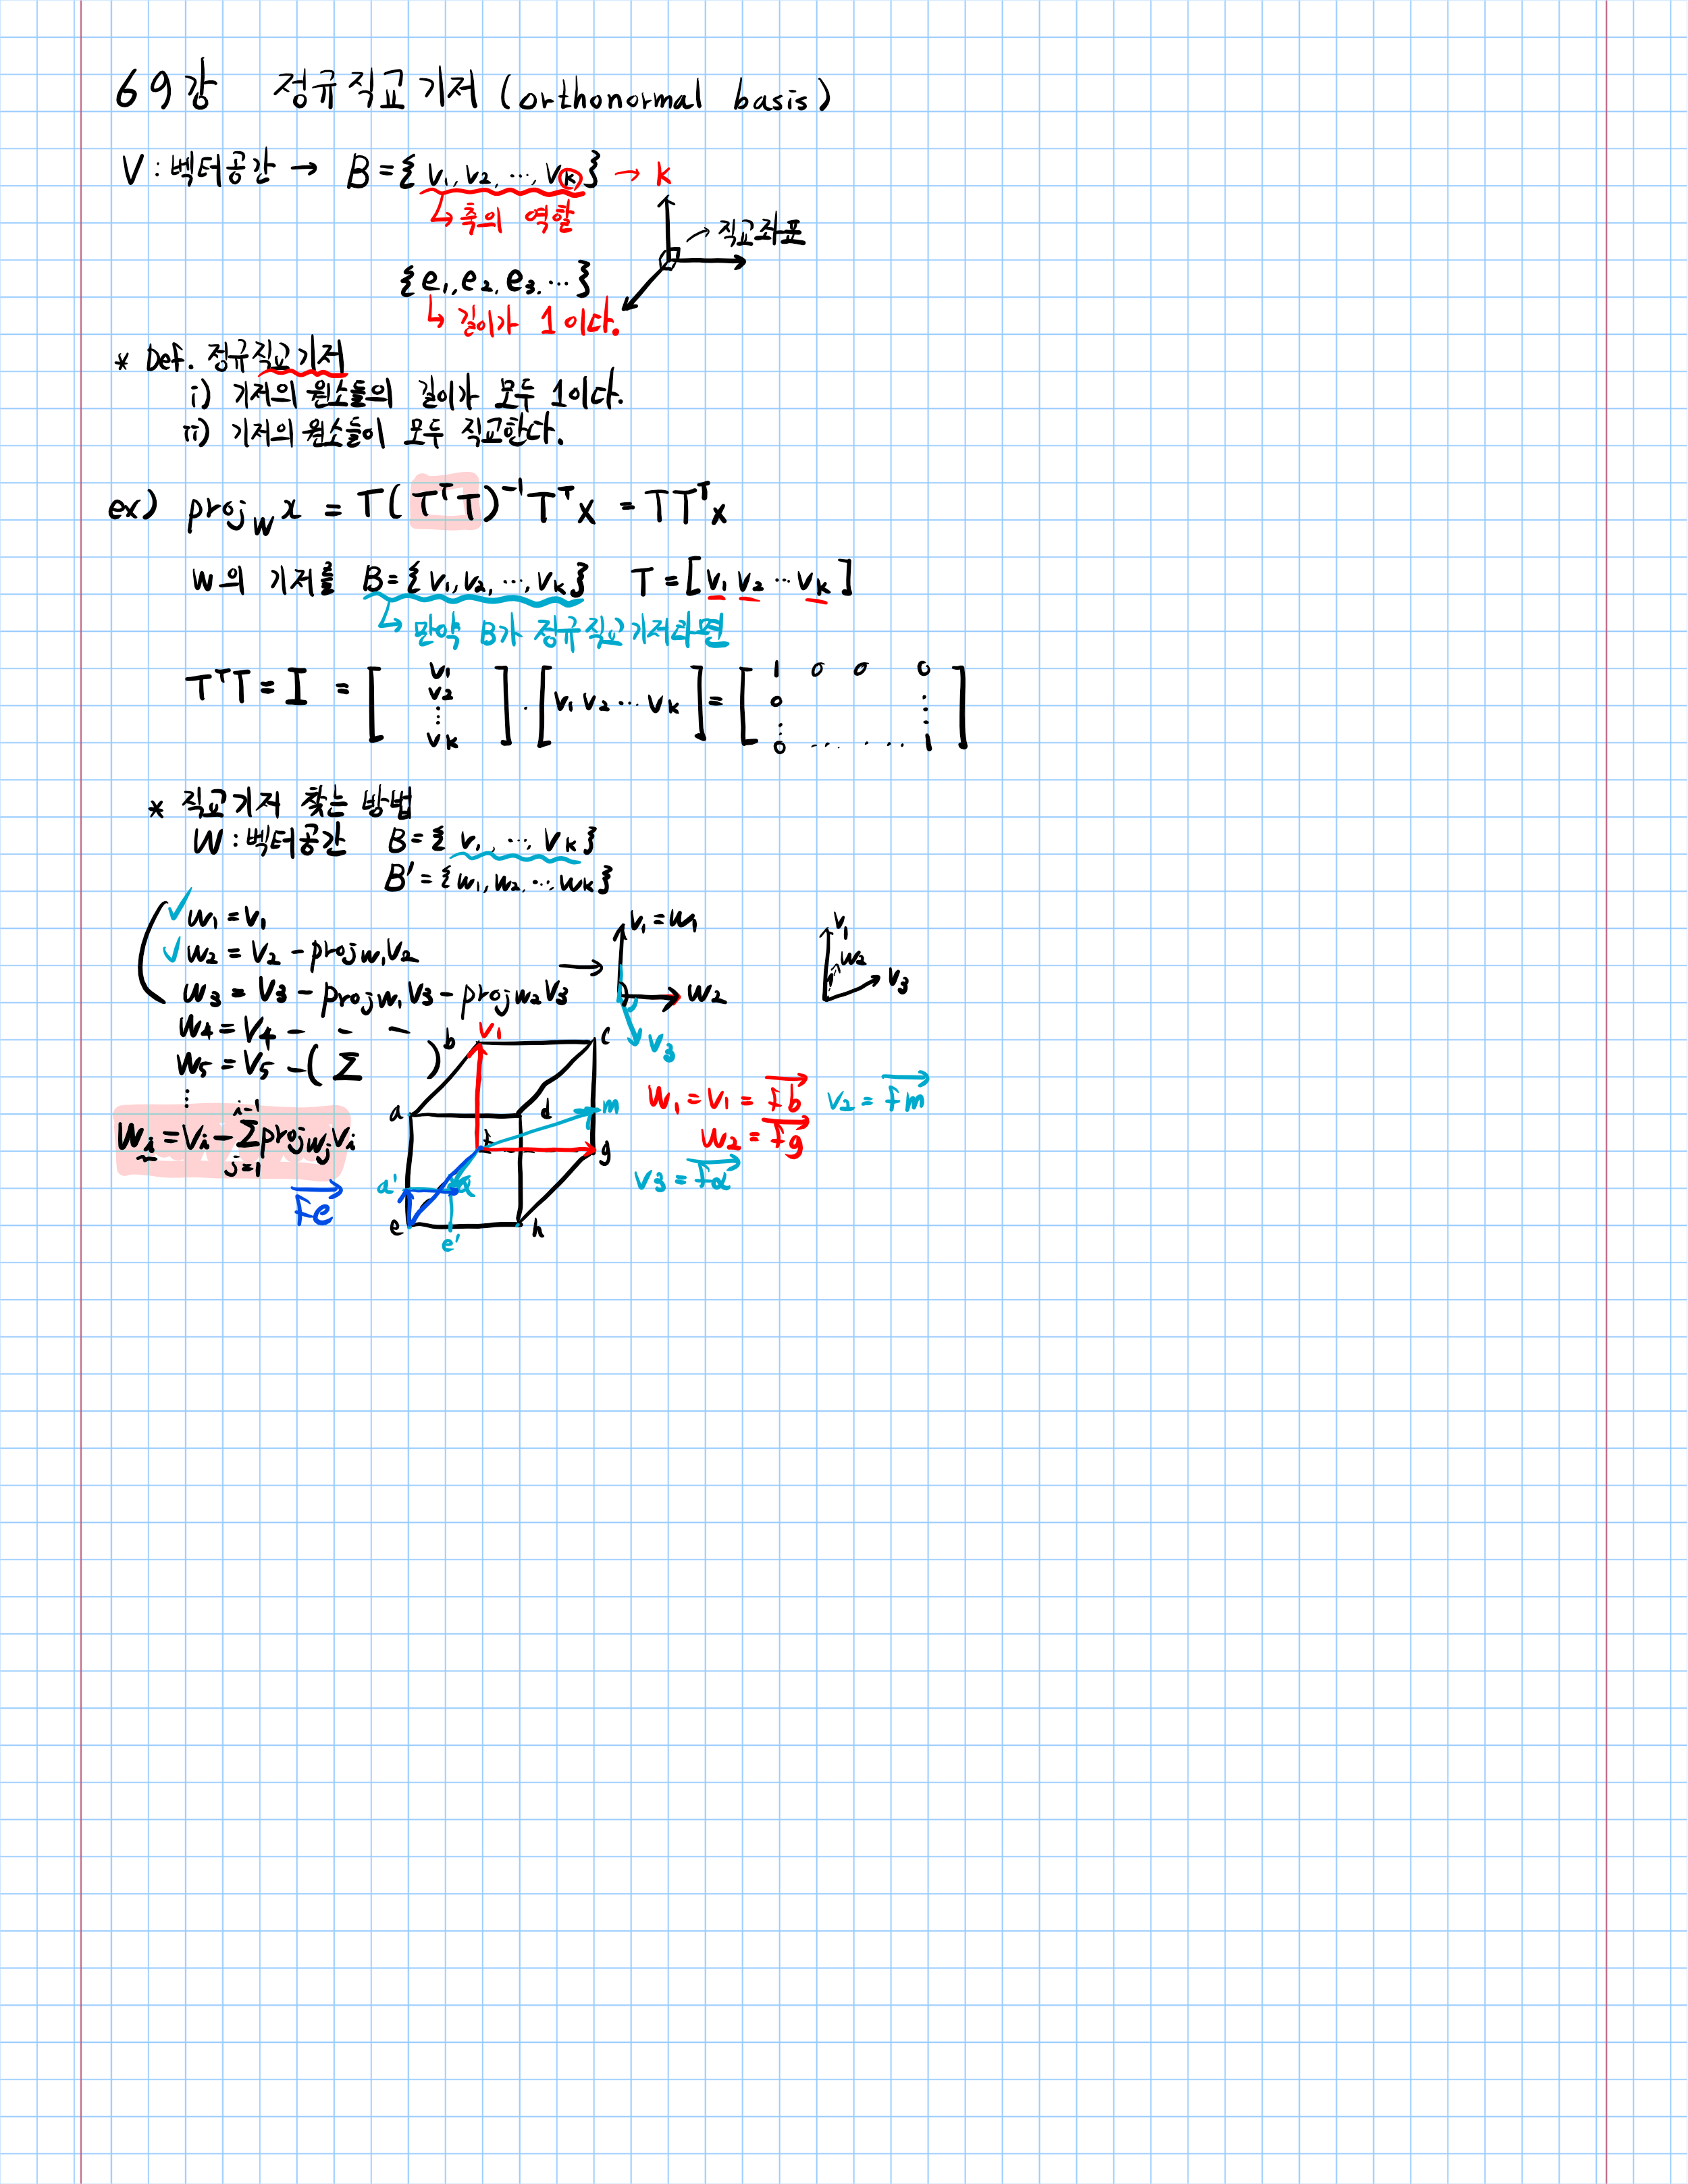 69강 정규직교기저 (orthonormal basis)
V : 벡터공간 → B = { v₁, v₂, ⋯, vₖ } → k
↳ 축의 역할
직교좌표
{ e₁, e₂, e₃, ⋯ }
↳ 길이가 1이다.
* Def. 정규직교기저
i) 기저의 원소들의 길이가 모두 1이다.
ii) 기저의 원소들이 모두 직교한다.
ex) proj_W x = T(TᵀT)⁻¹Tᵀx = TTᵀx
W의 기저를 B = { v₁, v₂, ⋯, vₖ } T = [v₁ v₂ ⋯ vₖ]
↳ 만약 B가 정규직교기저라면
TᵀT = I = [ v₁ v₂ ⋮ vₖ ] · [ v₁ v₂ ⋯ vₖ ] = [ 1 0 0 0 0 ⋮ ⋮ 0 ⋯ ⋯ 1 ]
* 직교기저 찾는 방법
W : 벡터공간 B = { v₁, ⋯, vₖ }
B' = { w₁, w₂, ⋯, wₖ }
✓ w₁ = v₁
✓ w₂ = v₂ - proj_w₁ v₂
w₃ = v₃ - proj_w₁ v₃ - proj_w₂ v₃ →
v₁ = w₁
w₂
v₃
v₁
w₂
v₃
w₄ = v₄ - - -
w₅ = v₅ - ( Σ )
⋮
wᵢ = vᵢ - Σ_{j=1}^{i-1} proj_wⱼ vᵢ
b v₁ c
a d m
f g
a' α
e h
e'
w₁ = v₁ = \overrightarrow{fb} v₂ = \overrightarrow{fm}
w₂ = \overrightarrow{fg}
v₃ = \overrightarrow{fα}
\overrightarrow{fe}